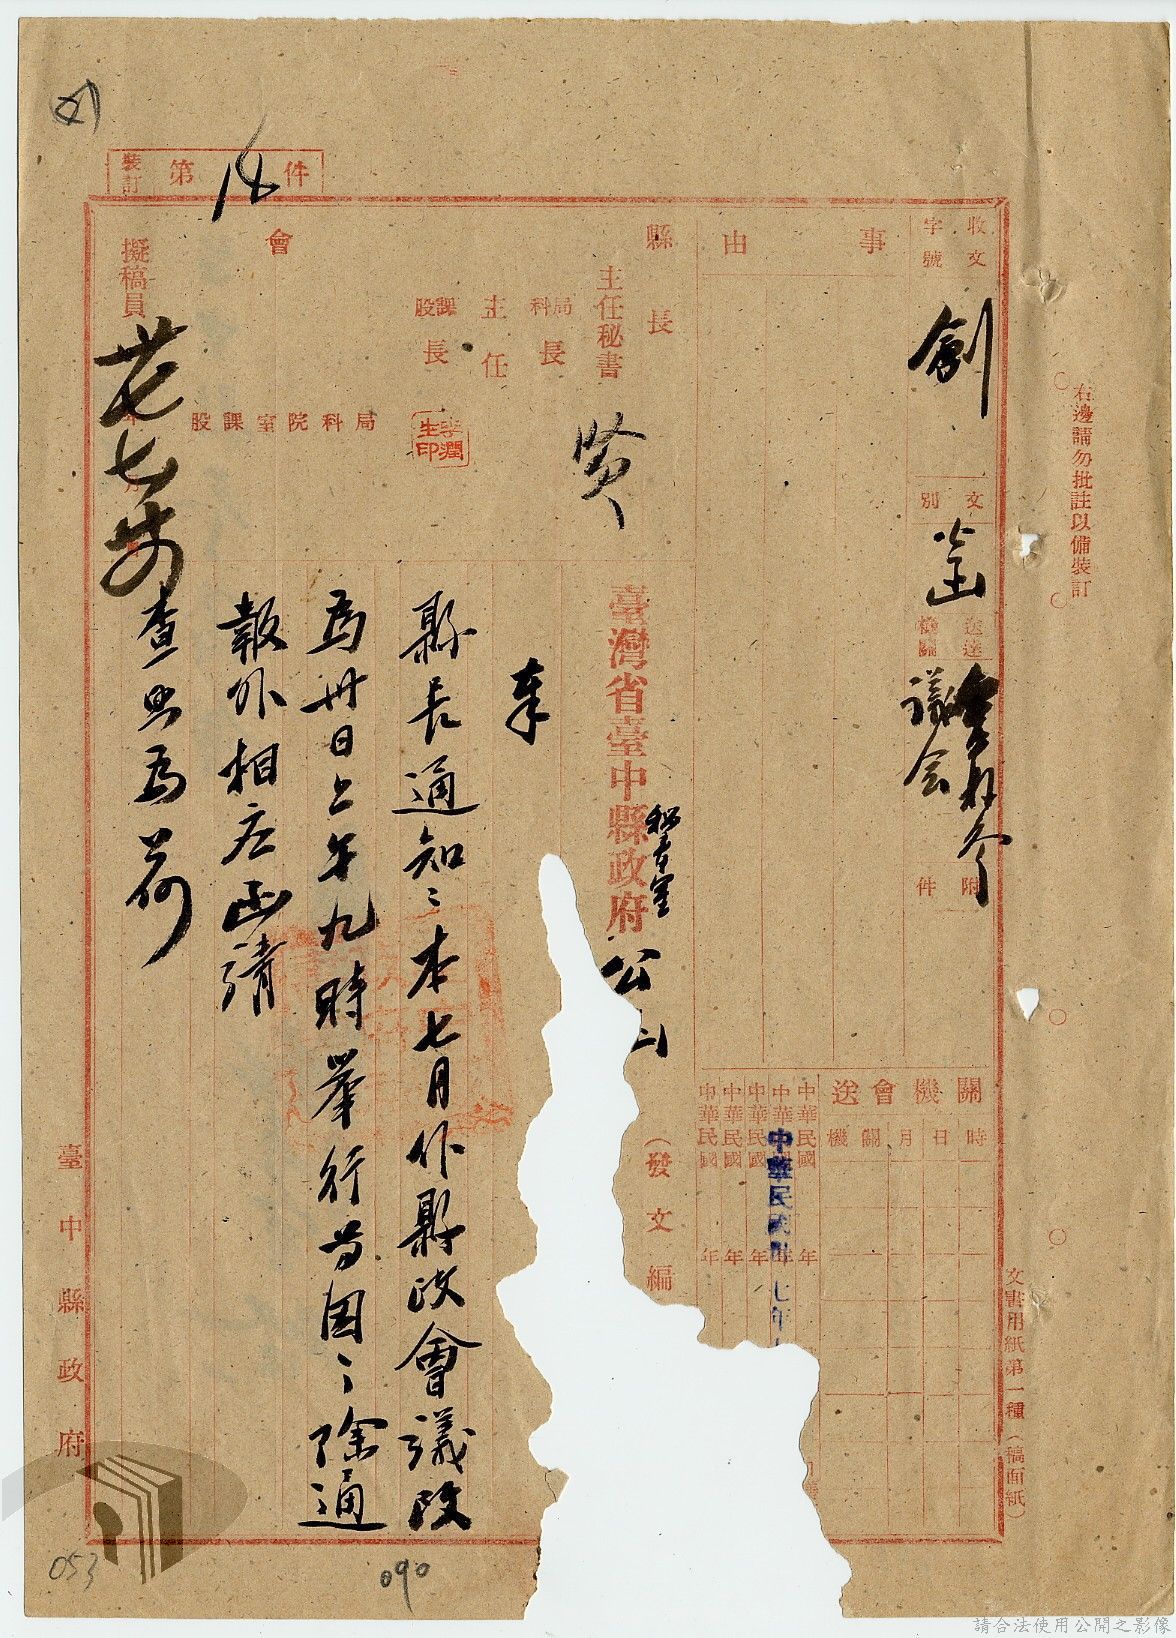 右邊請勿批註以備裝訂
文書用紙第一種（稿面紙）
裝訂
第
件
收文
字號
創
文別
送達機關
議会
附件
事由
關機會送
時日月關機
中華民國 年
中華民國 年
中華民國 年
中華民國 年
中華民國 年
中華民國卅七年
縣長
主任秘書
局科長
主任
課股長
李潤生印
會
局科院室課股
擬稿員
年月
賢
臺灣省臺中縣政府
秘書室
公函
（發文編
奉
縣長通知：本七月份縣政會議改
為卅日上午九時舉行等因：除通
報外相应函請
查照為荷
臺中縣政府
053
090
請合法使用公開之影像